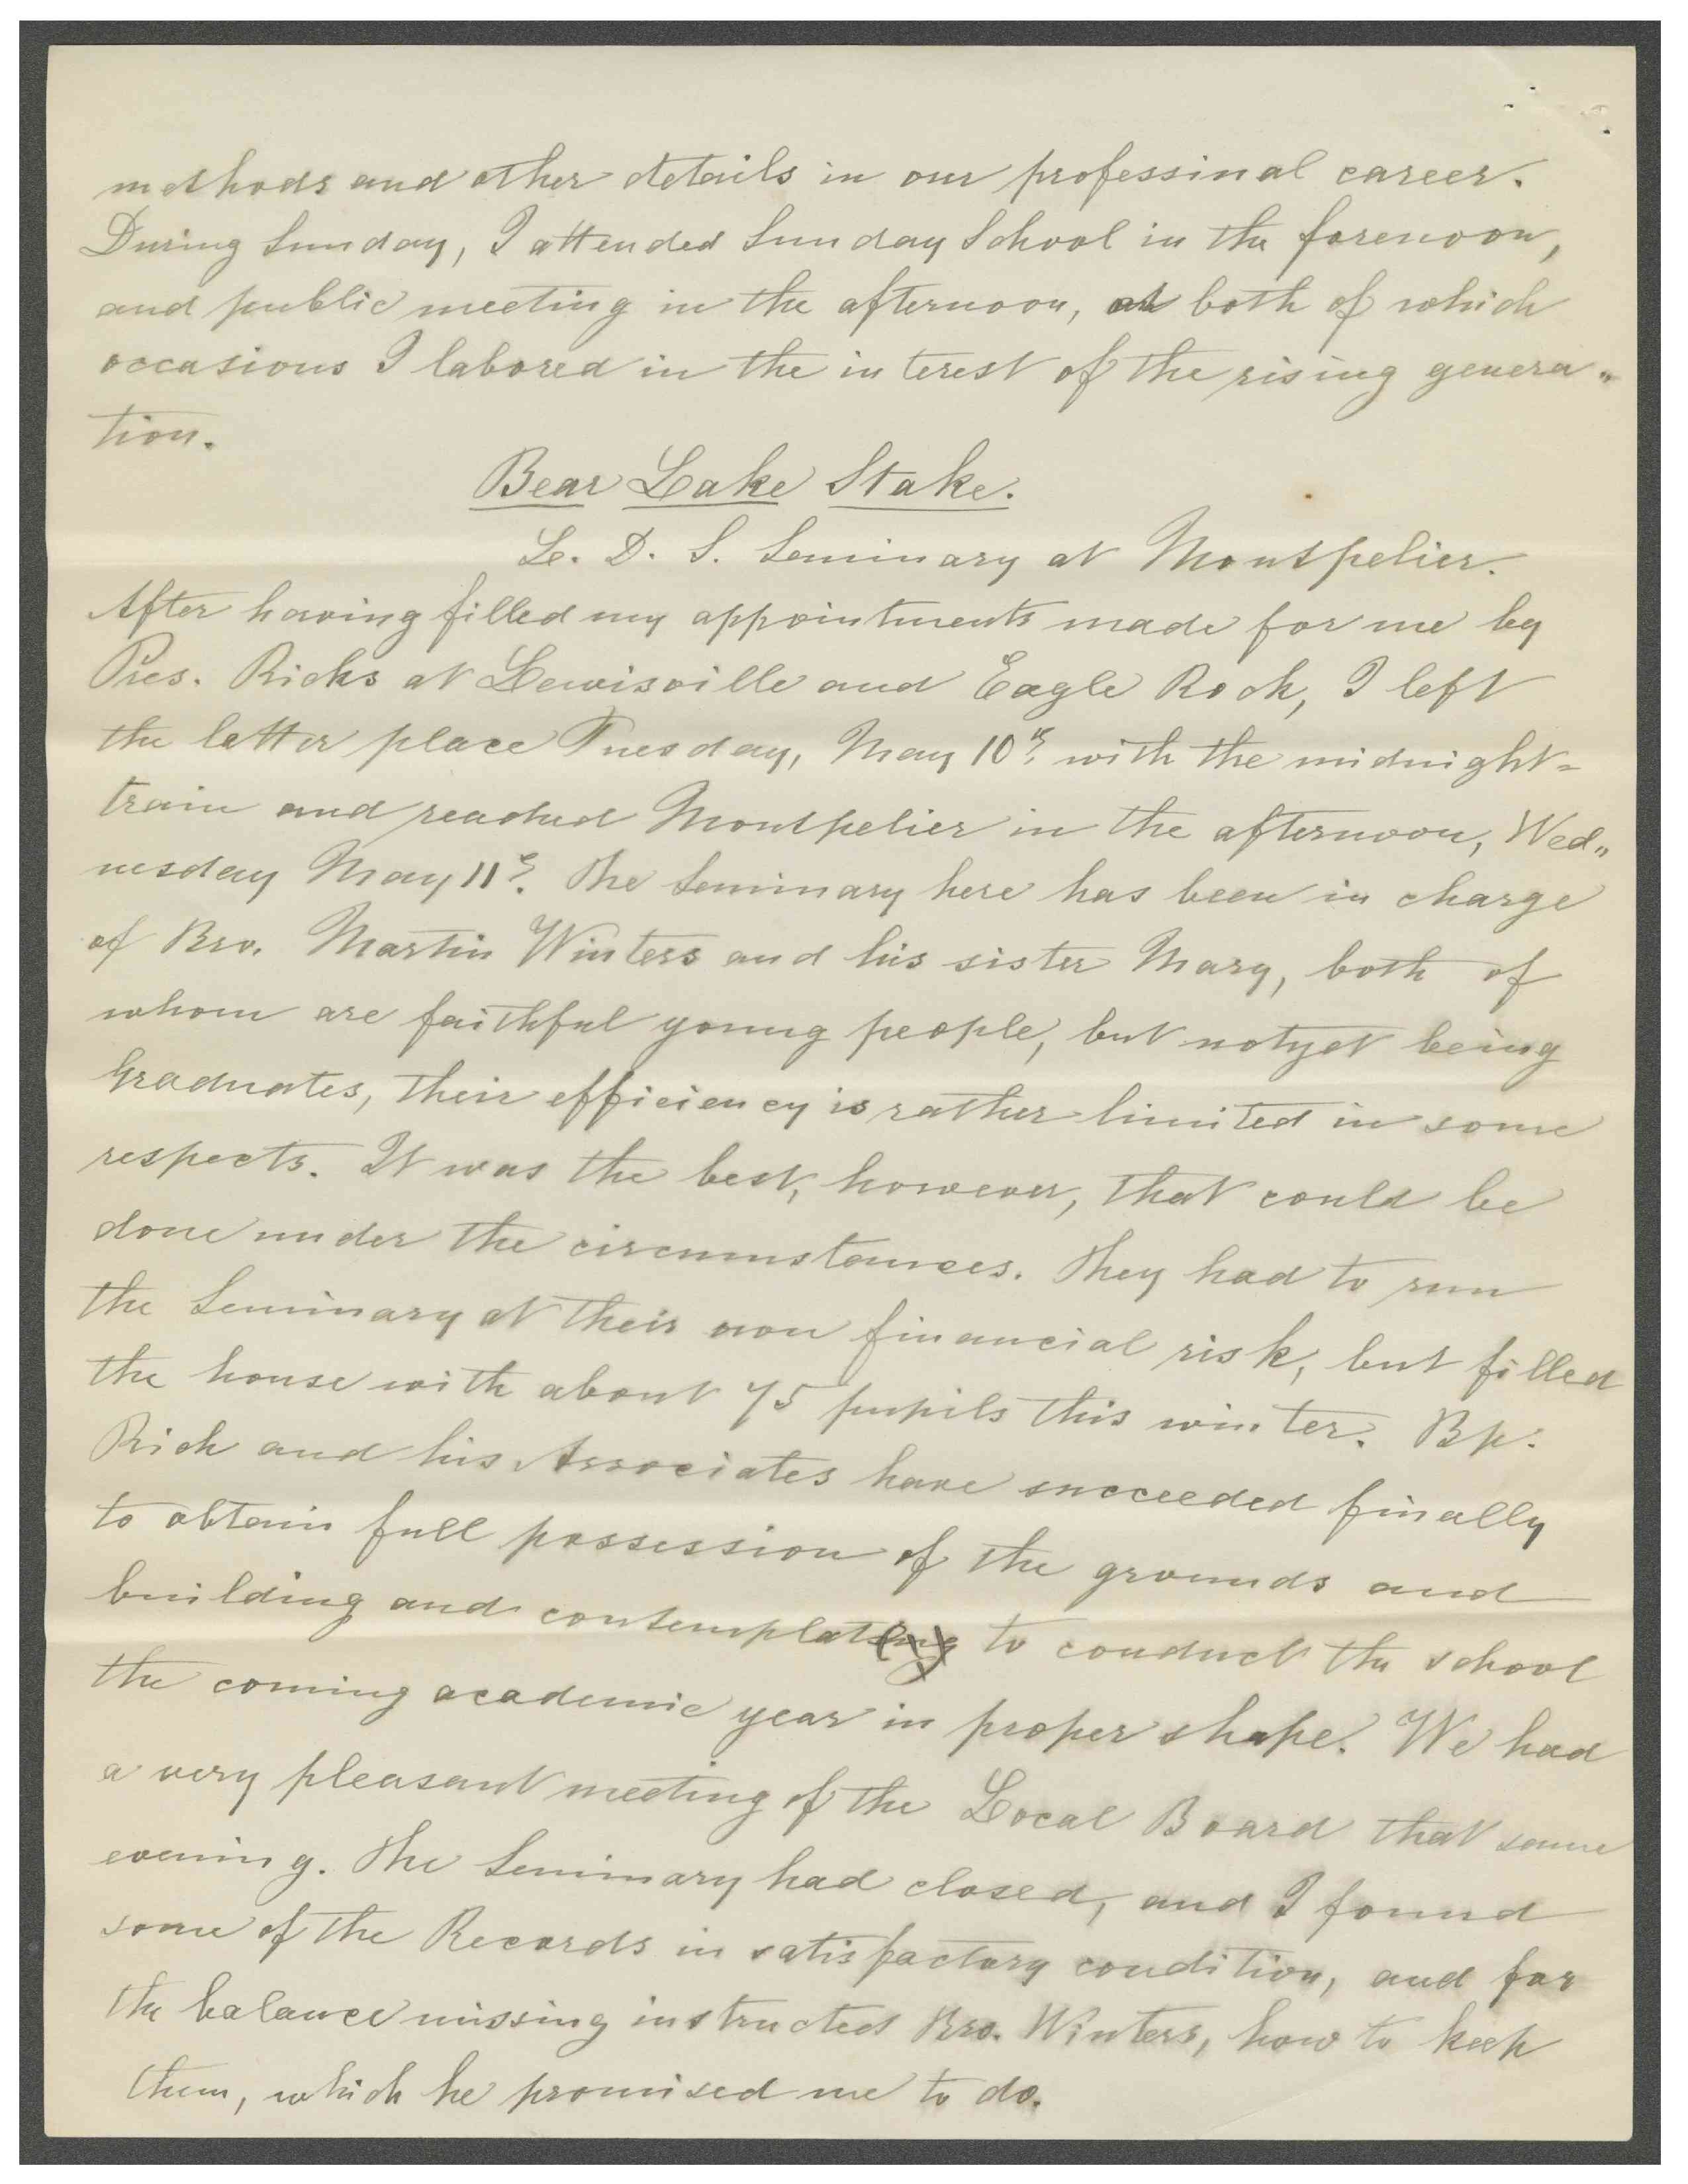 methods and other details in our professinal career.
During Sunday, I attended Sunday School in the forenoon,
and public meeting in the afternoon, at both of which
occasions I labored in the interest of the rising genera-
tion.
Bear Lake Stake.
L. D. S. Seminary at Montpelier.
After having filled my appointments made for me by
Pres. Ricks at Lewisville and Eagle Rock, I left
the latter place Tuesday, May 10th, with the midnight-
train and reached Montpelier in the afternoon, Wed-
nesday May 11th. The Seminary here has been in charge
of Bro. Martin Winters and his sister Mary, both of
whom are faithful young people, but not yet being
Graduates, their efficiency is rather limited in some
respects. It was the best, however, that could be
done under the circumstances. They had to run
the Seminary at their own financial risk, but filled
the house with about 75 pupils this winter. Bp.
Rich and his Associates have succeeded finally
to obtain full possession of the grounds and
building and contemplate to conduct the school
the coming academic year in proper shape. We had
a very pleasant meeting of the Local Board that same
evening. The Seminary had closed, and I found
some of the Records in satisfactory condition, and for
the balance missing instructed Bro. Winters, how to keep
them, which he promised me to do.